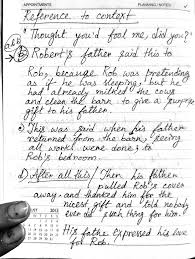 APPOINTMENTS
PLANNING / NOTES
Reference to context
Thought you'd fool me, did you?
a&b
B) Robert's father said this to
Rob, because Rob was pretending
as if he was sleeping, but he
had already milked the cows
and clean the barn, to give a surprise
gift to his father.
c) This was said when his father
returned from the barn, seeing
all work were done; to
Rob's bedroom.
d) After all this/ Then his father
pulled Rob's cover
away and thanked him for the
nicest gift and told nobody
ever did such thing for him.
His father expressed his love
for Rob.